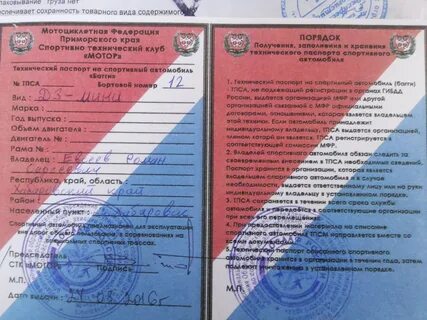 паковывание груза нет
спечивает сохранность товарного вида содержимого
Мотоциклетная Федерация
Приморского края
Спортивно технический клуб
«МОТОР»
Технический паспорт на спортивный автомобиль
«Багги»
№ ТПСА Бортовой номер 12
Вид: Д3-мини
Марка:
Год выпуска:
Объем двигателя:
Двигатель №:
Рама №:
Владелец: Евсеев Роман
Сергеевич
Республика, край, область:
Хабаровский край
Район:
Населенный пункт: г. Хабаровск
Спортивный автомобиль предназначен для эксплуатации
вне дорог, соревнованиях на
специальных спортивных трассах.
Председатель
СТК «МОТОР» подпись
М.П.
Дата выдачи: 21.03.2016г
ПОРЯДОК
Получения, заполнения и хранения
технического паспорта спортивного
автомобиля
1. Технический паспорт на спортивный автомобиль (багги)
ТПСА, не подлежащий регистрации в органах ГИБДД
России, выдается организацией МФР или другой
организацией, имеющей с МФР официальные
договорные отношения, которая является владельцем
этой техники. Если автомобиль принадлежит
индивидуальному владельцу, ТПСА выдается организацией,
членом которой он является. ТПСА регистрируется
соответствующей комиссией МФР.
2. Владелец спортивного автомобиля обязан следить за
своевременным внесением в ТПСА необходимых сведений.
Паспорт хранится в организации, которая является
владельцем спортивного автомобиля и в случае
необходимости выдается ответственному лицу или на руки
индивидуальному владельцу в установленном порядке.
3. ТПСА сохраняется в течение всего срока службы
автомобиля и передается в соответствующие организации
при всех его перемещениях.
4. При предоставлении материалов на списание
спортивного автомобиля ТПСА направляется вместе со
всеми документами.
5. Технический паспорт списанного спортивного
автомобиля хранится в организации в течении года, затем
подлежит уничтожению в установленном порядке.
М.П.